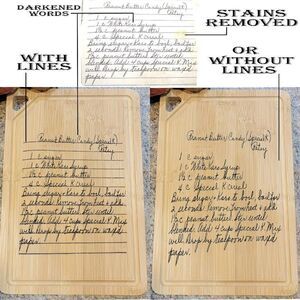 DARKENED
WORDS
STAINS
REMOVED
WITH
LINES
OR
WITHOUT
LINES
Peanut Butter Candy (Special K)
Patsy
1 c sugar
1 c White Karo syrup
1½ c peanut butter
4 c Special K cereal
Bring sugar + Karo to boil, boil for
2 seconds. Remove from heat + add
1½ c peanut butter. Stir until
blended. Add 4 cups Special K. Mix
well. Drop by teaspoon on waxed
paper.
Peanut Butter Candy (Special K)
1 c sugar
1 c White Karo syrup
1½ c peanut butter
4 c Special K cereal
Bring sugar + Karo to boil, boil for
2 seconds. Remove from heat + add
1½ c peanut butter. Stir until
blended. Add 4 cups Special K. Mix
well. Drop by teaspoon on waxed
paper.
Peanut Butter Candy (Special K)
1 c sugar
1 c White Karo syrup
1½ c peanut butter
4 c Special K cereal
Bring sugar + Karo to boil, boil for
2 seconds. Remove from heat + add
1½ c peanut butter. Stir until
blended. Add 4 cups Special K. Mix
well. Drop by teaspoon on waxed
paper.